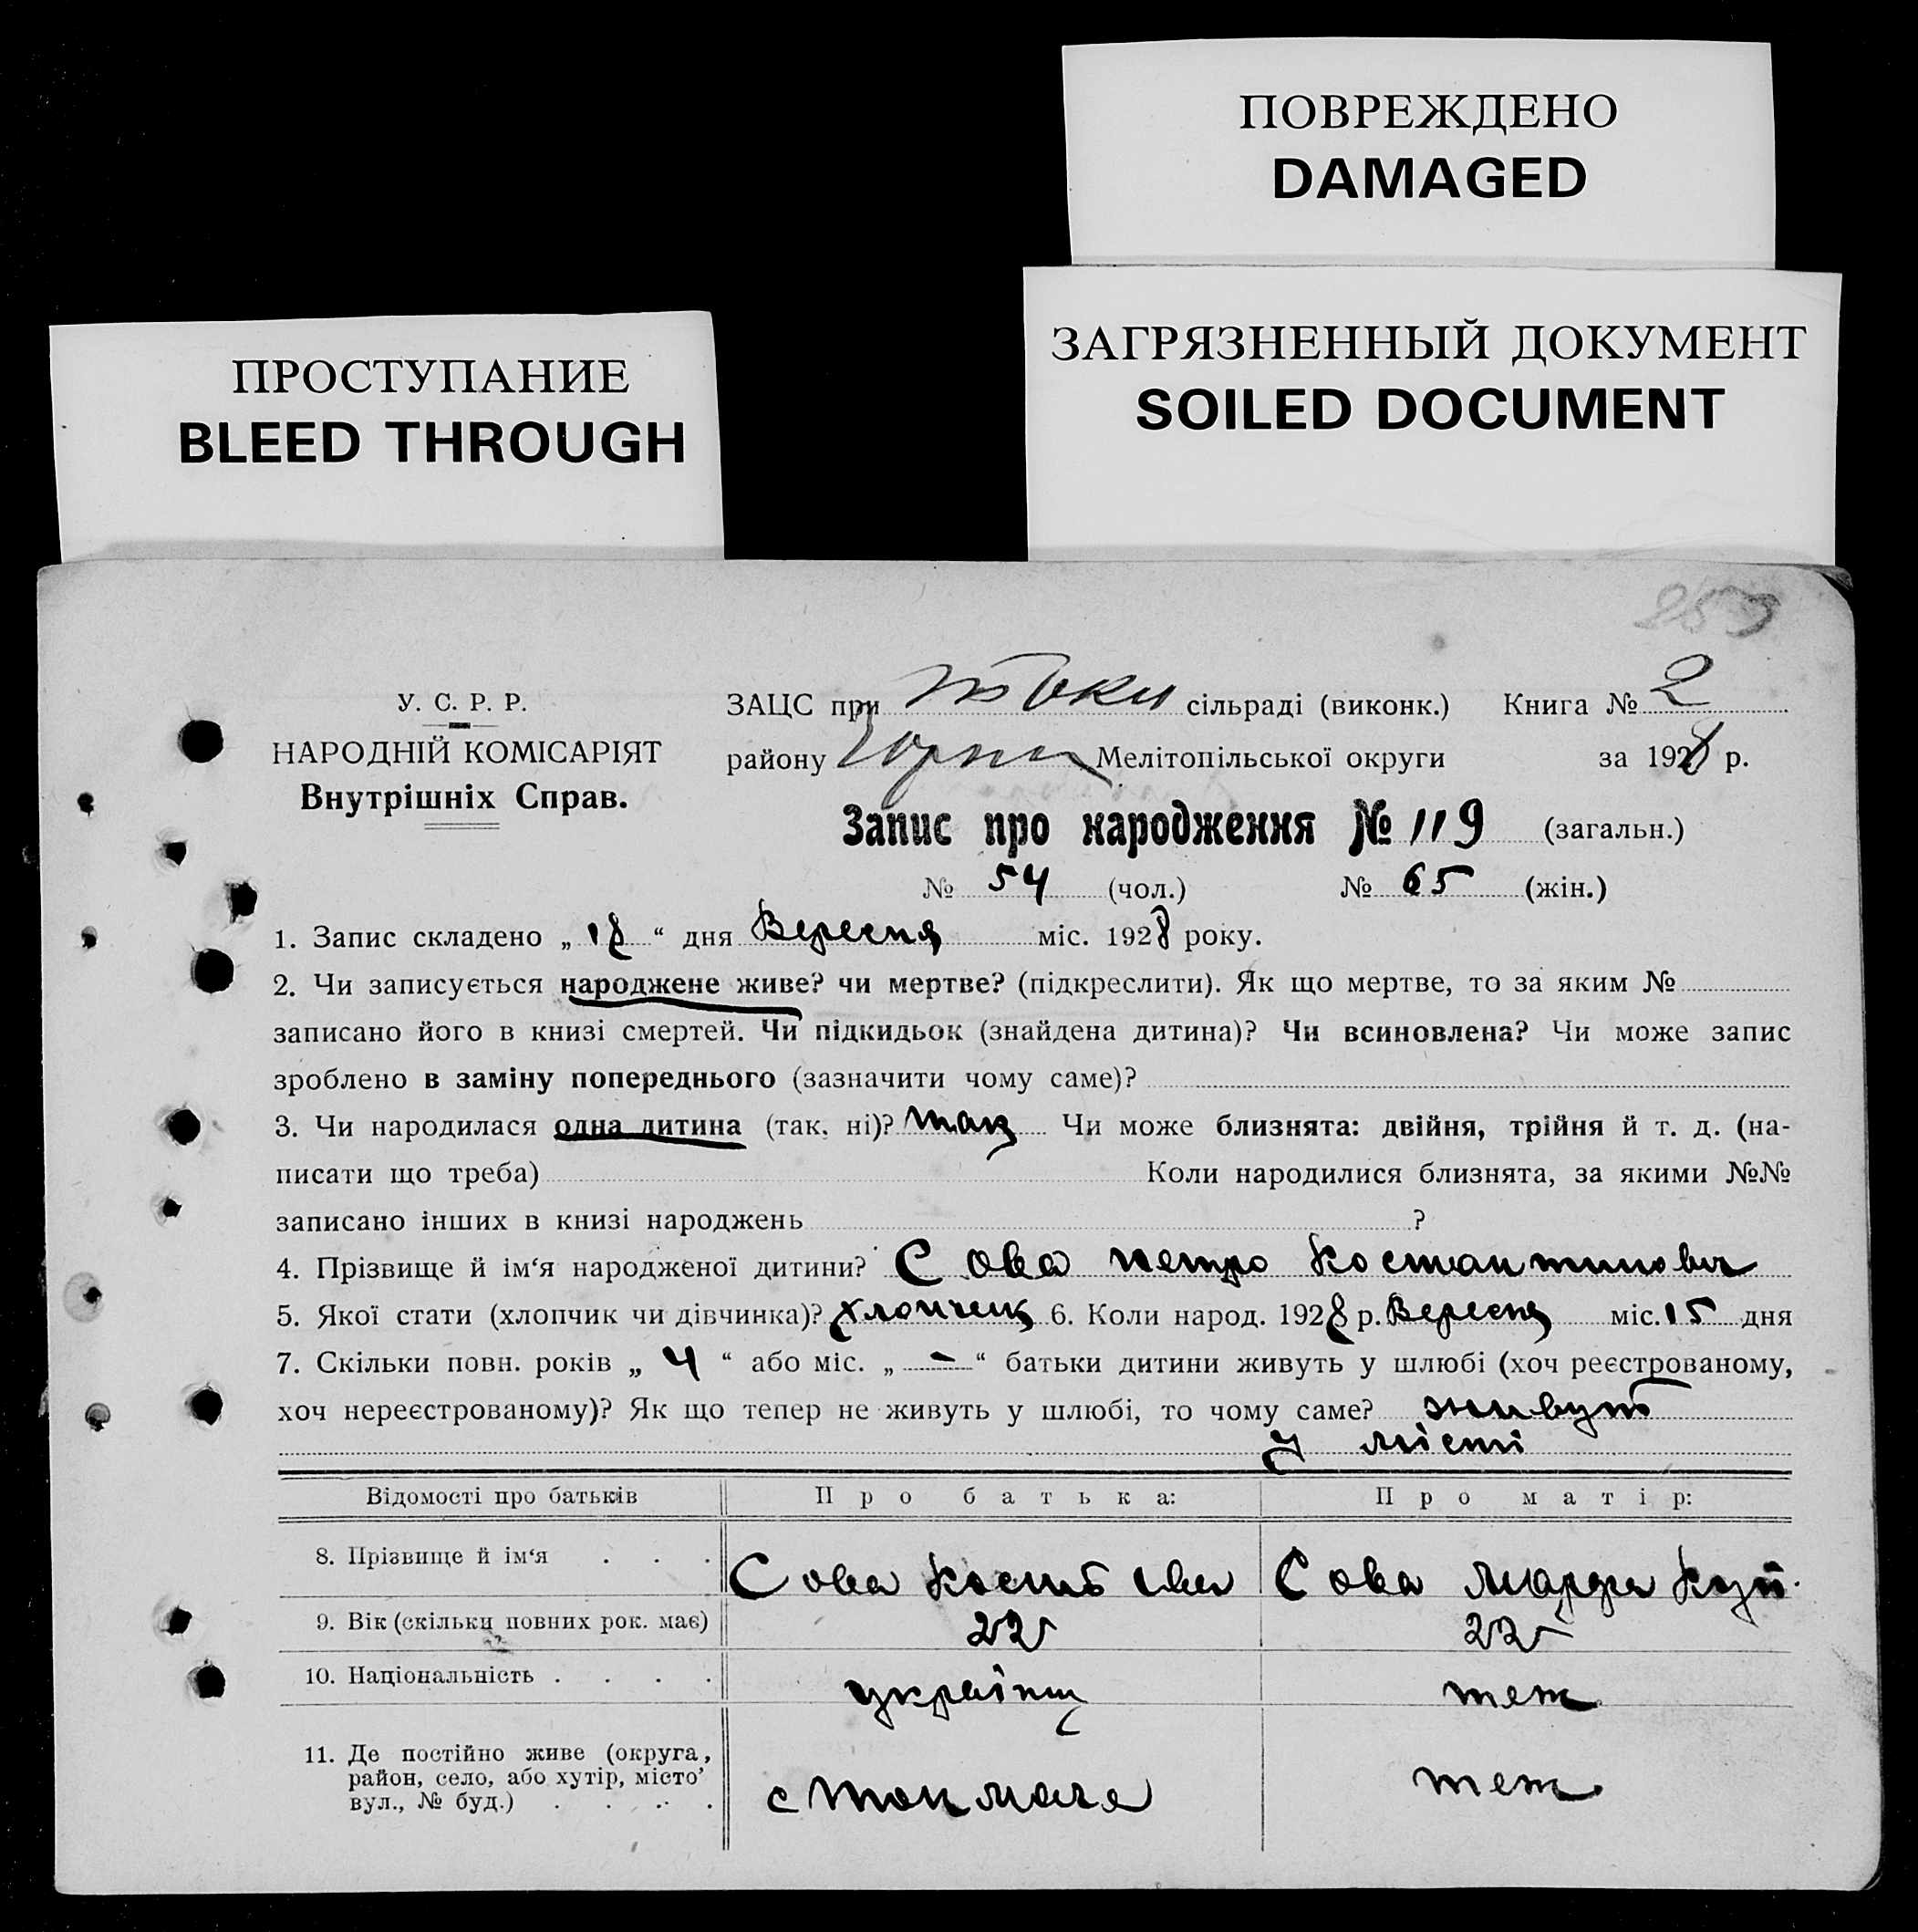 ПОВРЕЖДЕНО
DAMAGED
ЗАГРЯЗНЕННЫЙ ДОКУМЕНТ
SOILED DOCUMENT
ПРОСТУПАНИЕ
BLEED THROUGH
У. С. Р. Р.
НАРОДНІЙ КОМІСАРІЯТ
Внутрішніх Справ.
ЗАЦС при сільраді (виконк.) Книга № 2
району Мелітопільської округи за 1928 р.
Запис про народження № 119 (загальн.)
№ 54 (чол.) № 65 (жін.)
1. Запис складено „ 18 “ дня Вересня міс. 1928 року.
2. Чи записується народжене живе? чи мертве? (підкреслити). Як що мертве, то за яким №
записано його в книзі смертей. Чи підкидьок (знайдена дитина)? Чи всиновлена? Чи може запис
зроблено в заміну попереднього (зазначити чому саме)?
3. Чи народилася одна дитина (так, ні)? так Чи може близнята: двійня, трійня й т. д. (на-
писати що треба) Коли народилися близнята, за якими №№
записано інших в книзі народжень ?
4. Прізвище й ім‘я народженої дитини? Сова Петро Костантинович
5. Якої стати (хлопчик чи дівчинка)? хлопчик 6. Коли народ. 1928 р. Вересня міс. 15 дня
7. Скільки повн. років „ 4 “ або міс. „ - “ батьки дитини живуть у шлюбі (хоч реєстрованому,
хоч нереєстрованому)? Як що тепер не живуть у шлюбі, то чому саме? живуть
у місті
Відомості про батьків Про батька: Про матір:
8. Прізвище й ім‘я . . . Сова Кость Ів Сова Марфа Куп.
9. Вік (скільки повних рок. має) 22 22
10. Національність . . . . українц теж
11. Де постійно живе (округа,
район, село, або хутір, місто’
вул., № буд.) . . . . с Токмача теж